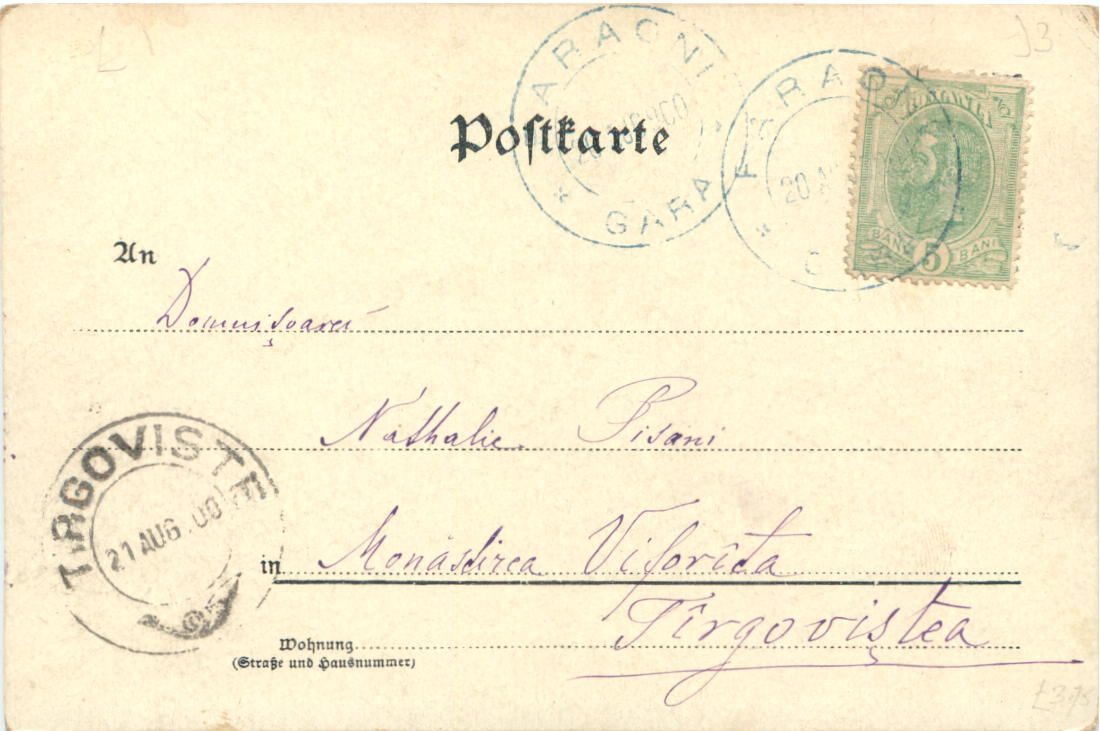 Postkarte
ARAONI
GARA
20
ROMANIA
BANI 5 BANI
An
Domnișoarei
Nathalie Pisani
TIRGOVISTE
21 AUG 00
in Monăstirea Viforîta
Tîrgoviștea
Wohnung
(Straße und Hausnummer)